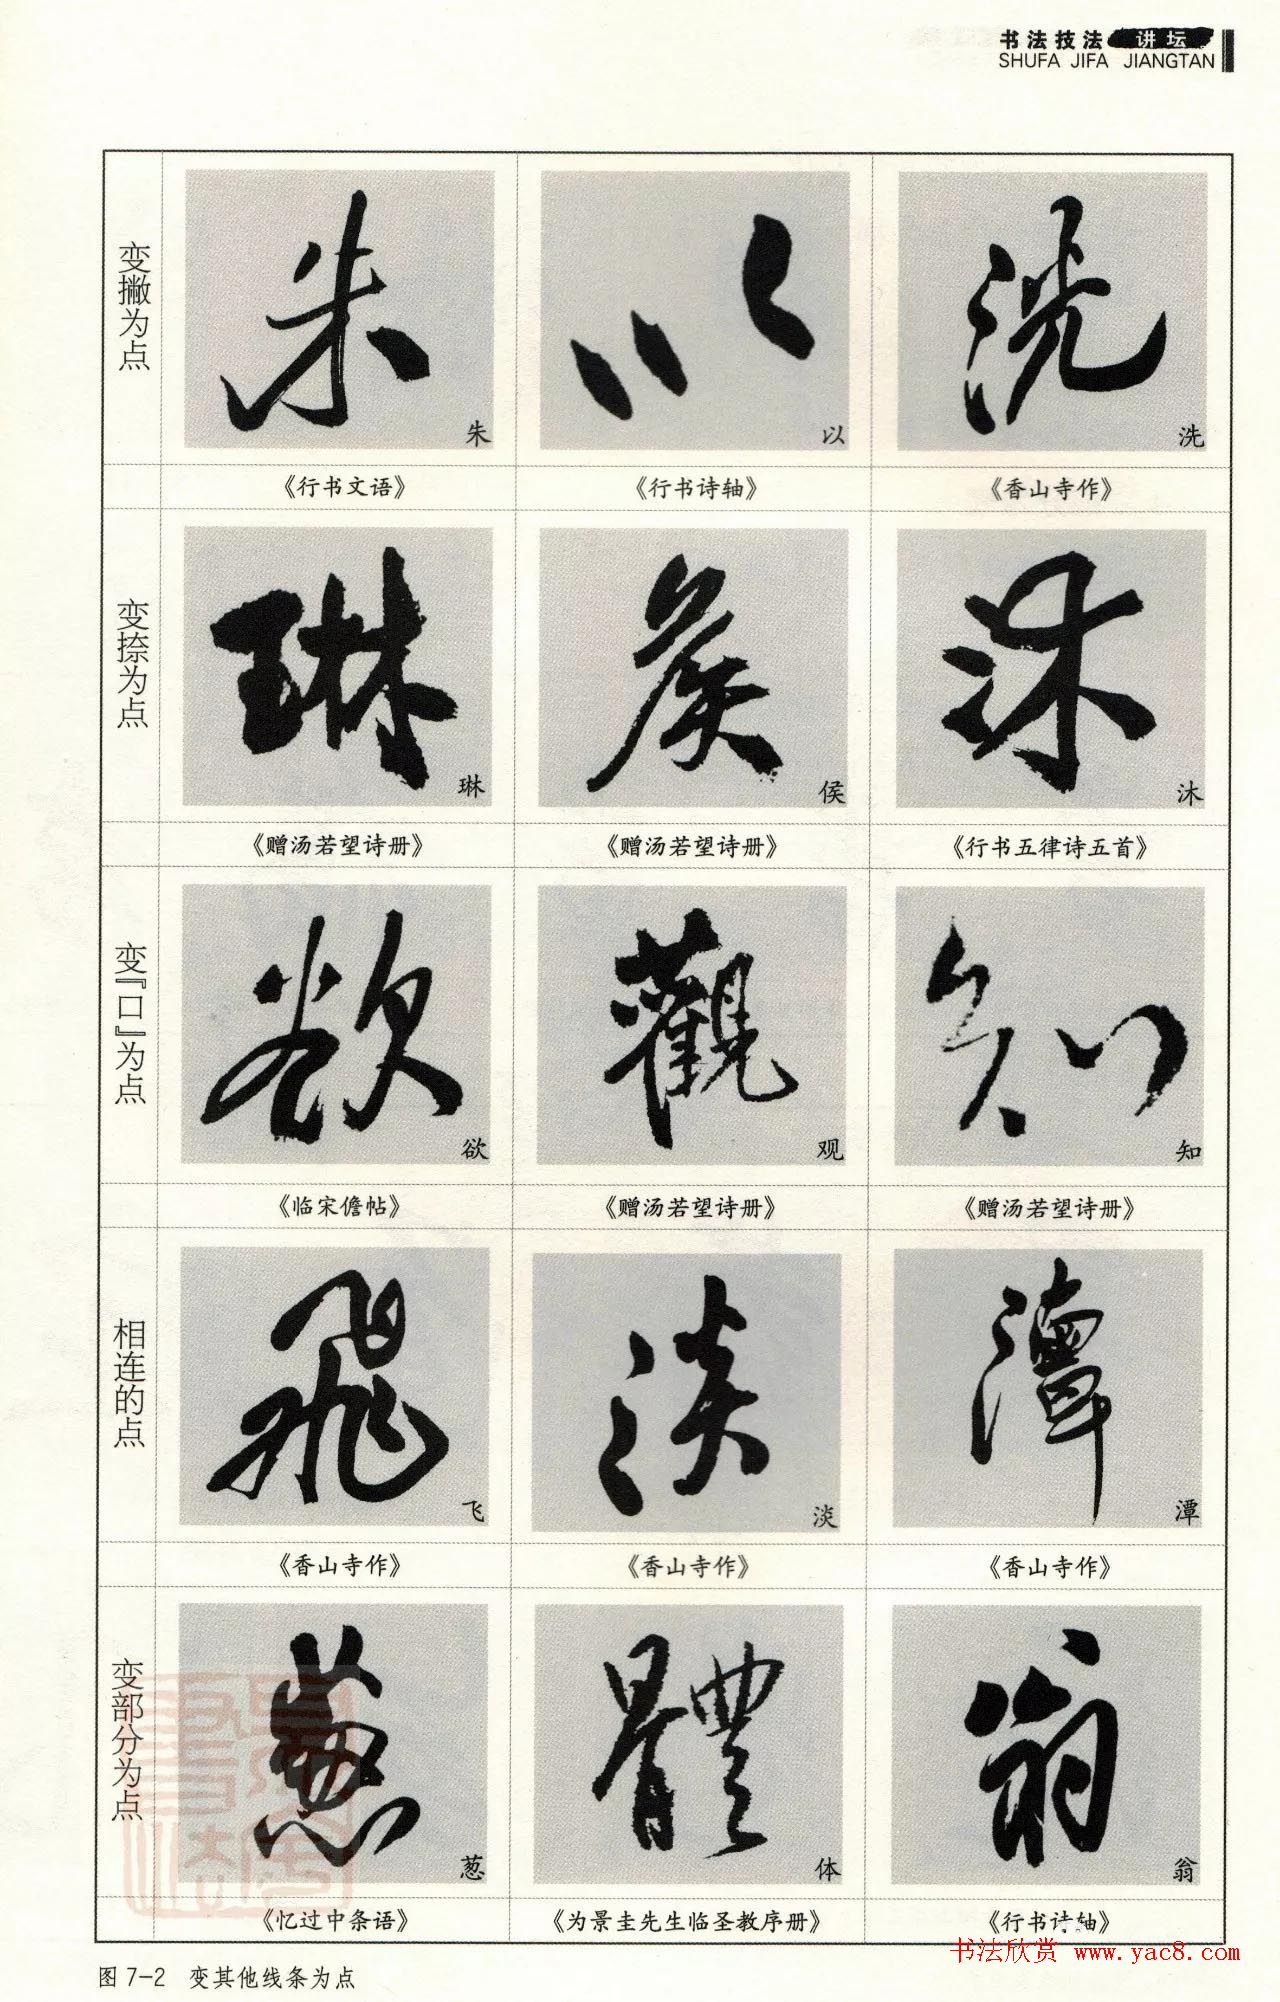 书法技法 讲坛
SHUFA JIFA JIANGTAN
变撇为点
朱
以
洗
《行书文语》
《行书诗轴》
《香山寺作》
变捺为点
琳
侯
沐
《赠汤若望诗册》
《赠汤若望诗册》
《行书五律诗五首》
变『口』为点
欲
观
知
《临宋儋帖》
《赠汤若望诗册》
《赠汤若望诗册》
相连的点
飞
淡
潭
《香山寺作》
《香山寺作》
《香山寺作》
变部分为点
葱
体
翁
《忆过中条语》
《为景圭先生临圣教序册》
《行书诗轴》
书法欣赏 www.yac8.com
图 7-2 变其他线条为点